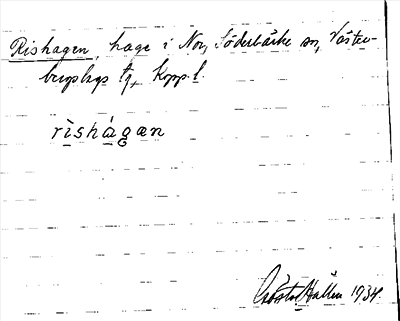 Rishagen, hage i Nor, Söderbärke sn, Väster-
bergslags tg, Kopp. l.
rìshágan
Gösta Hallén 1934.